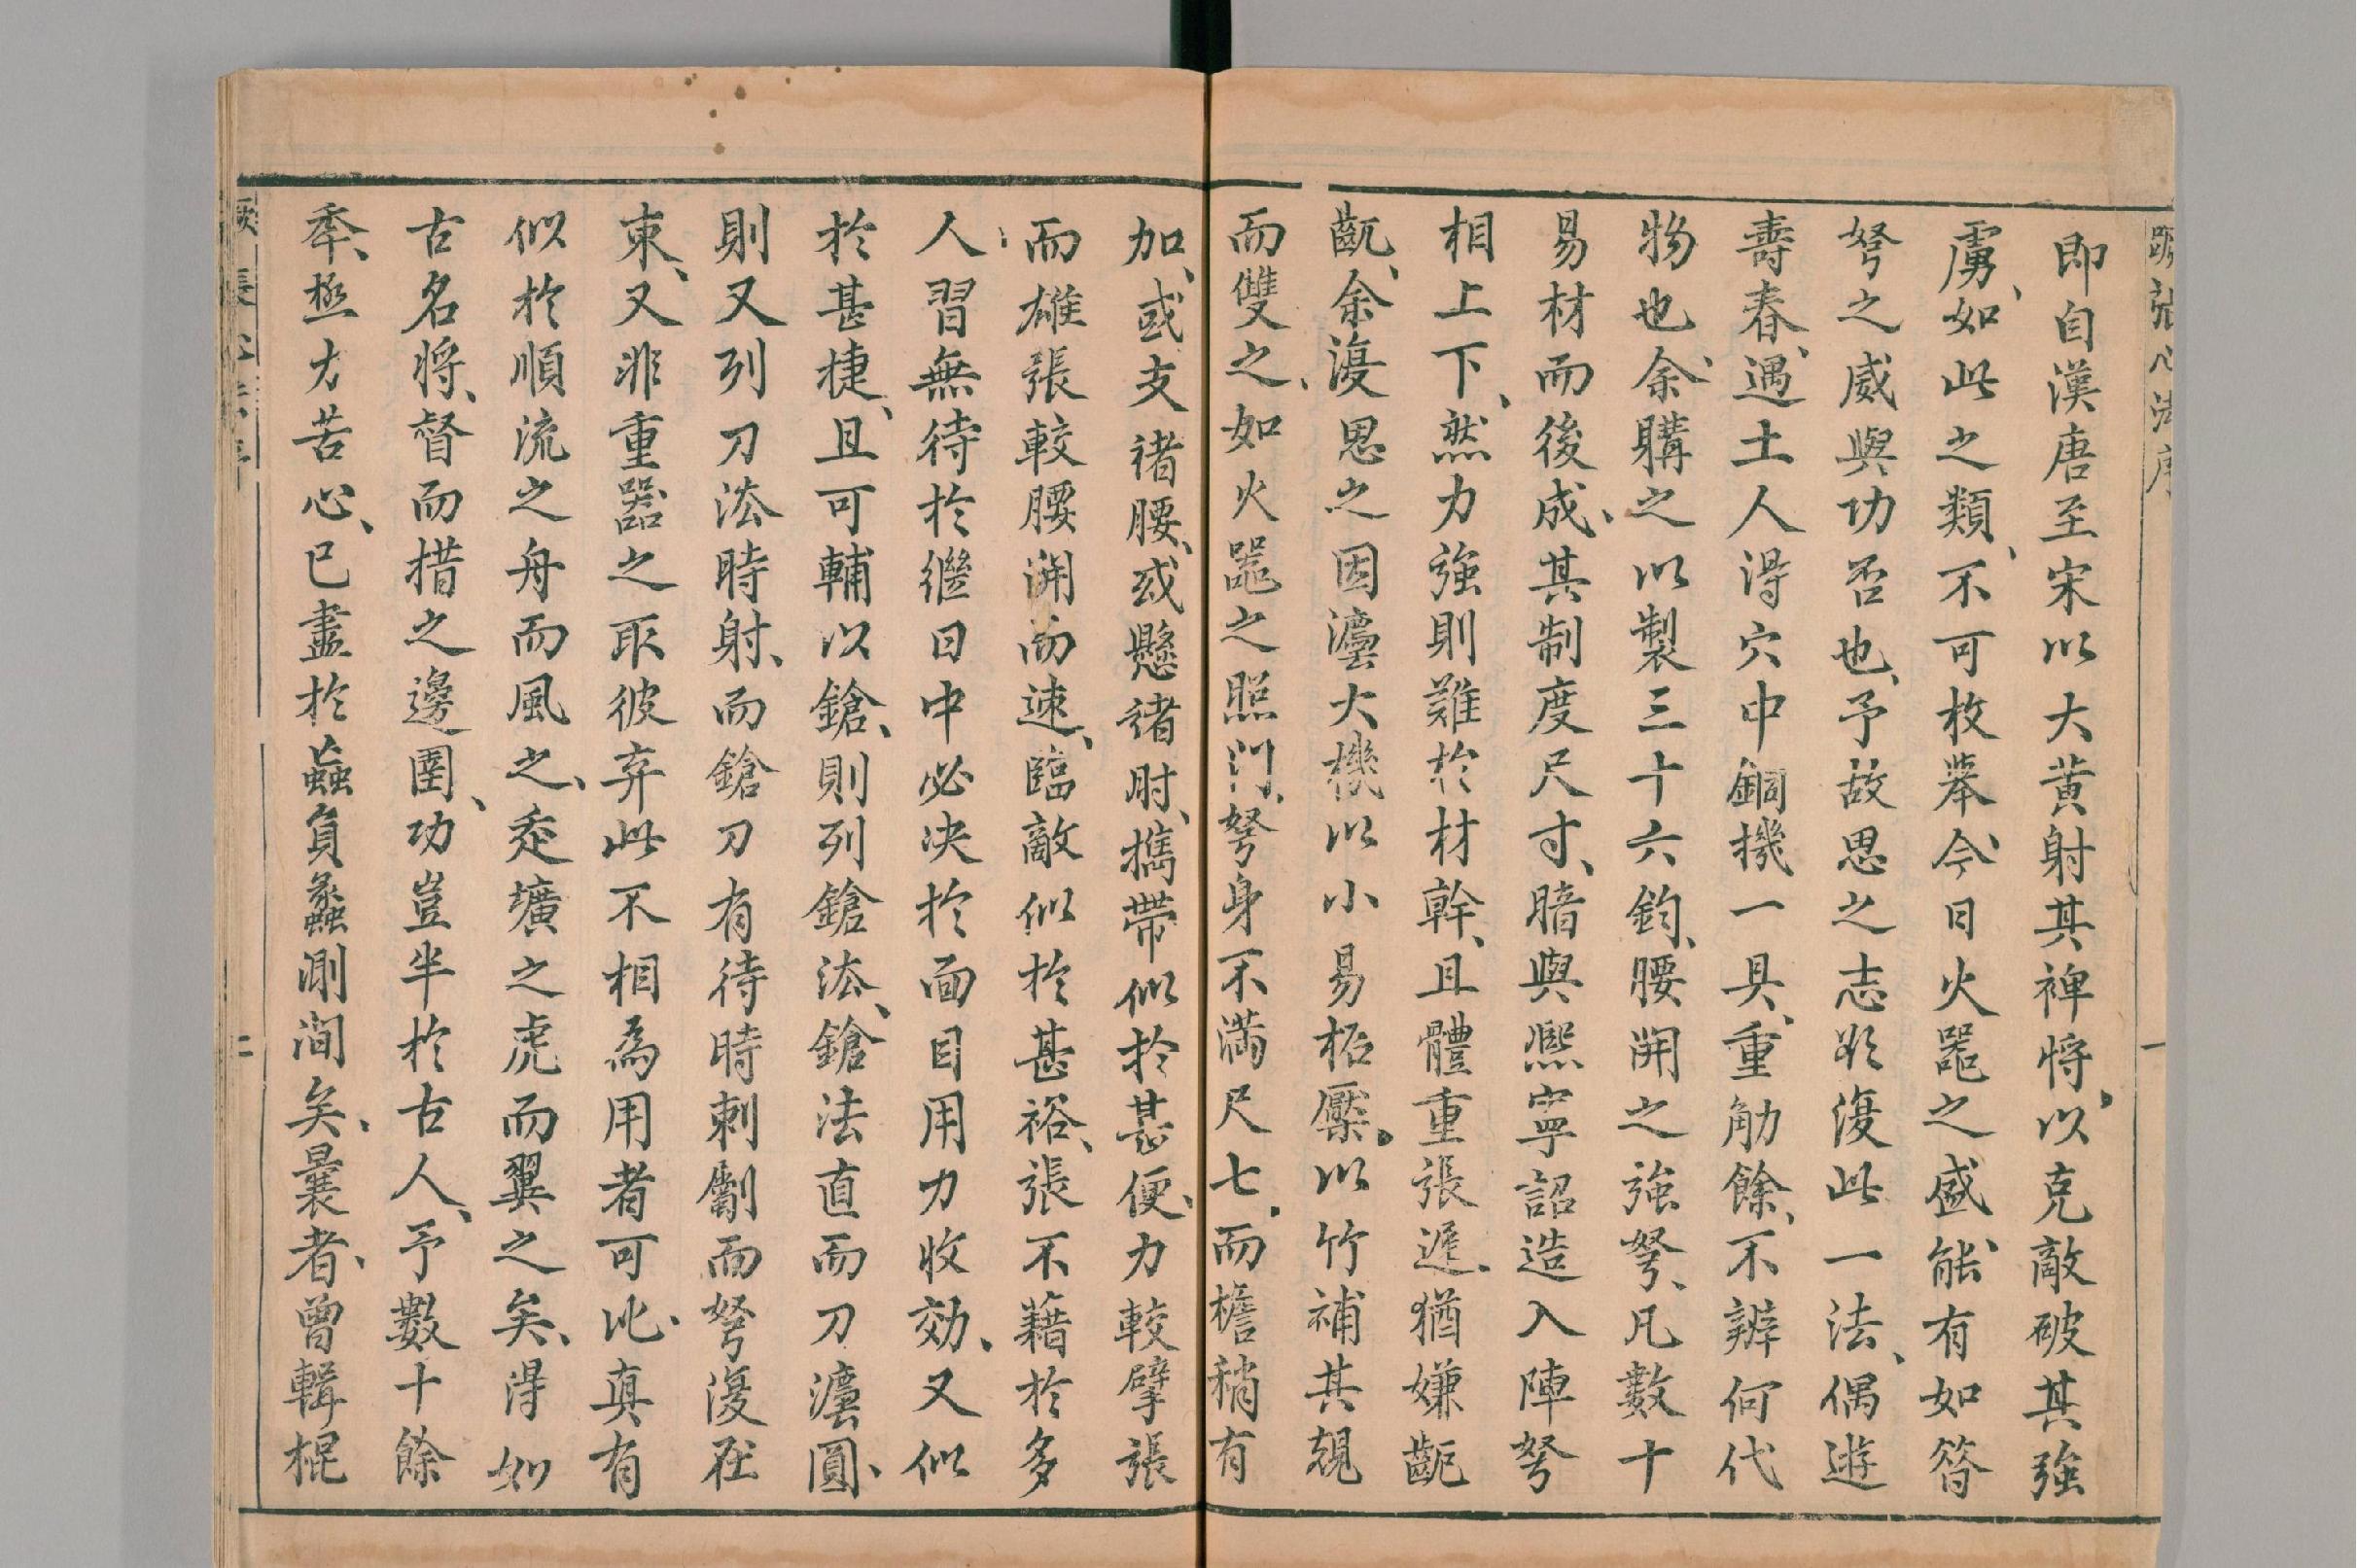 蹶張心法序
一
即自漢唐至宋以大黄射其裨將、以克敵破其強
虜、如此之類、不可枚舉、今日火器之盛、能有如答
弩之威與功否也、予故思之志欲復此一法、偶遊
壽春、遇土人得穴中銅機一具、重觔餘、不辨何代
物也、余購之以製三十六鈞、腰開之強弩、凡數十
易材而後成、其制度尺寸、暗與熈寧詔造入陣弩
相上下、然力強則難於材幹、且體重張遲、猶嫌
余復思之因濾大機以小易柘檿、以竹補其
而雙之、如火器之照門、弩身不滿尺七、而檐稍有
加、或支諸腰、或懸諸肘、攜帶似於甚便、力較擘張
而雄張較腰開而速、臨敵似於甚裕、張不藉於多
人、習無待於繼日中必决於面目用力收効、又似
於甚捷、且可輔以鎗、則列鎗法、鎗法直而刀灋圓、
則又列刀法時射、而鎗刀有待時刺劚而弩復在
束、又非重器之取彼弃此不相為用者可比、真有
似於順流之舟而風之、走壙之虎而翼之矣、得如
古名將、督而措之邊圉、功豈半於古人、予數十餘
年、極力苦心、已盡於蟁負蠡測間矣、曩者、曾輯棍
蹶張心法序
二